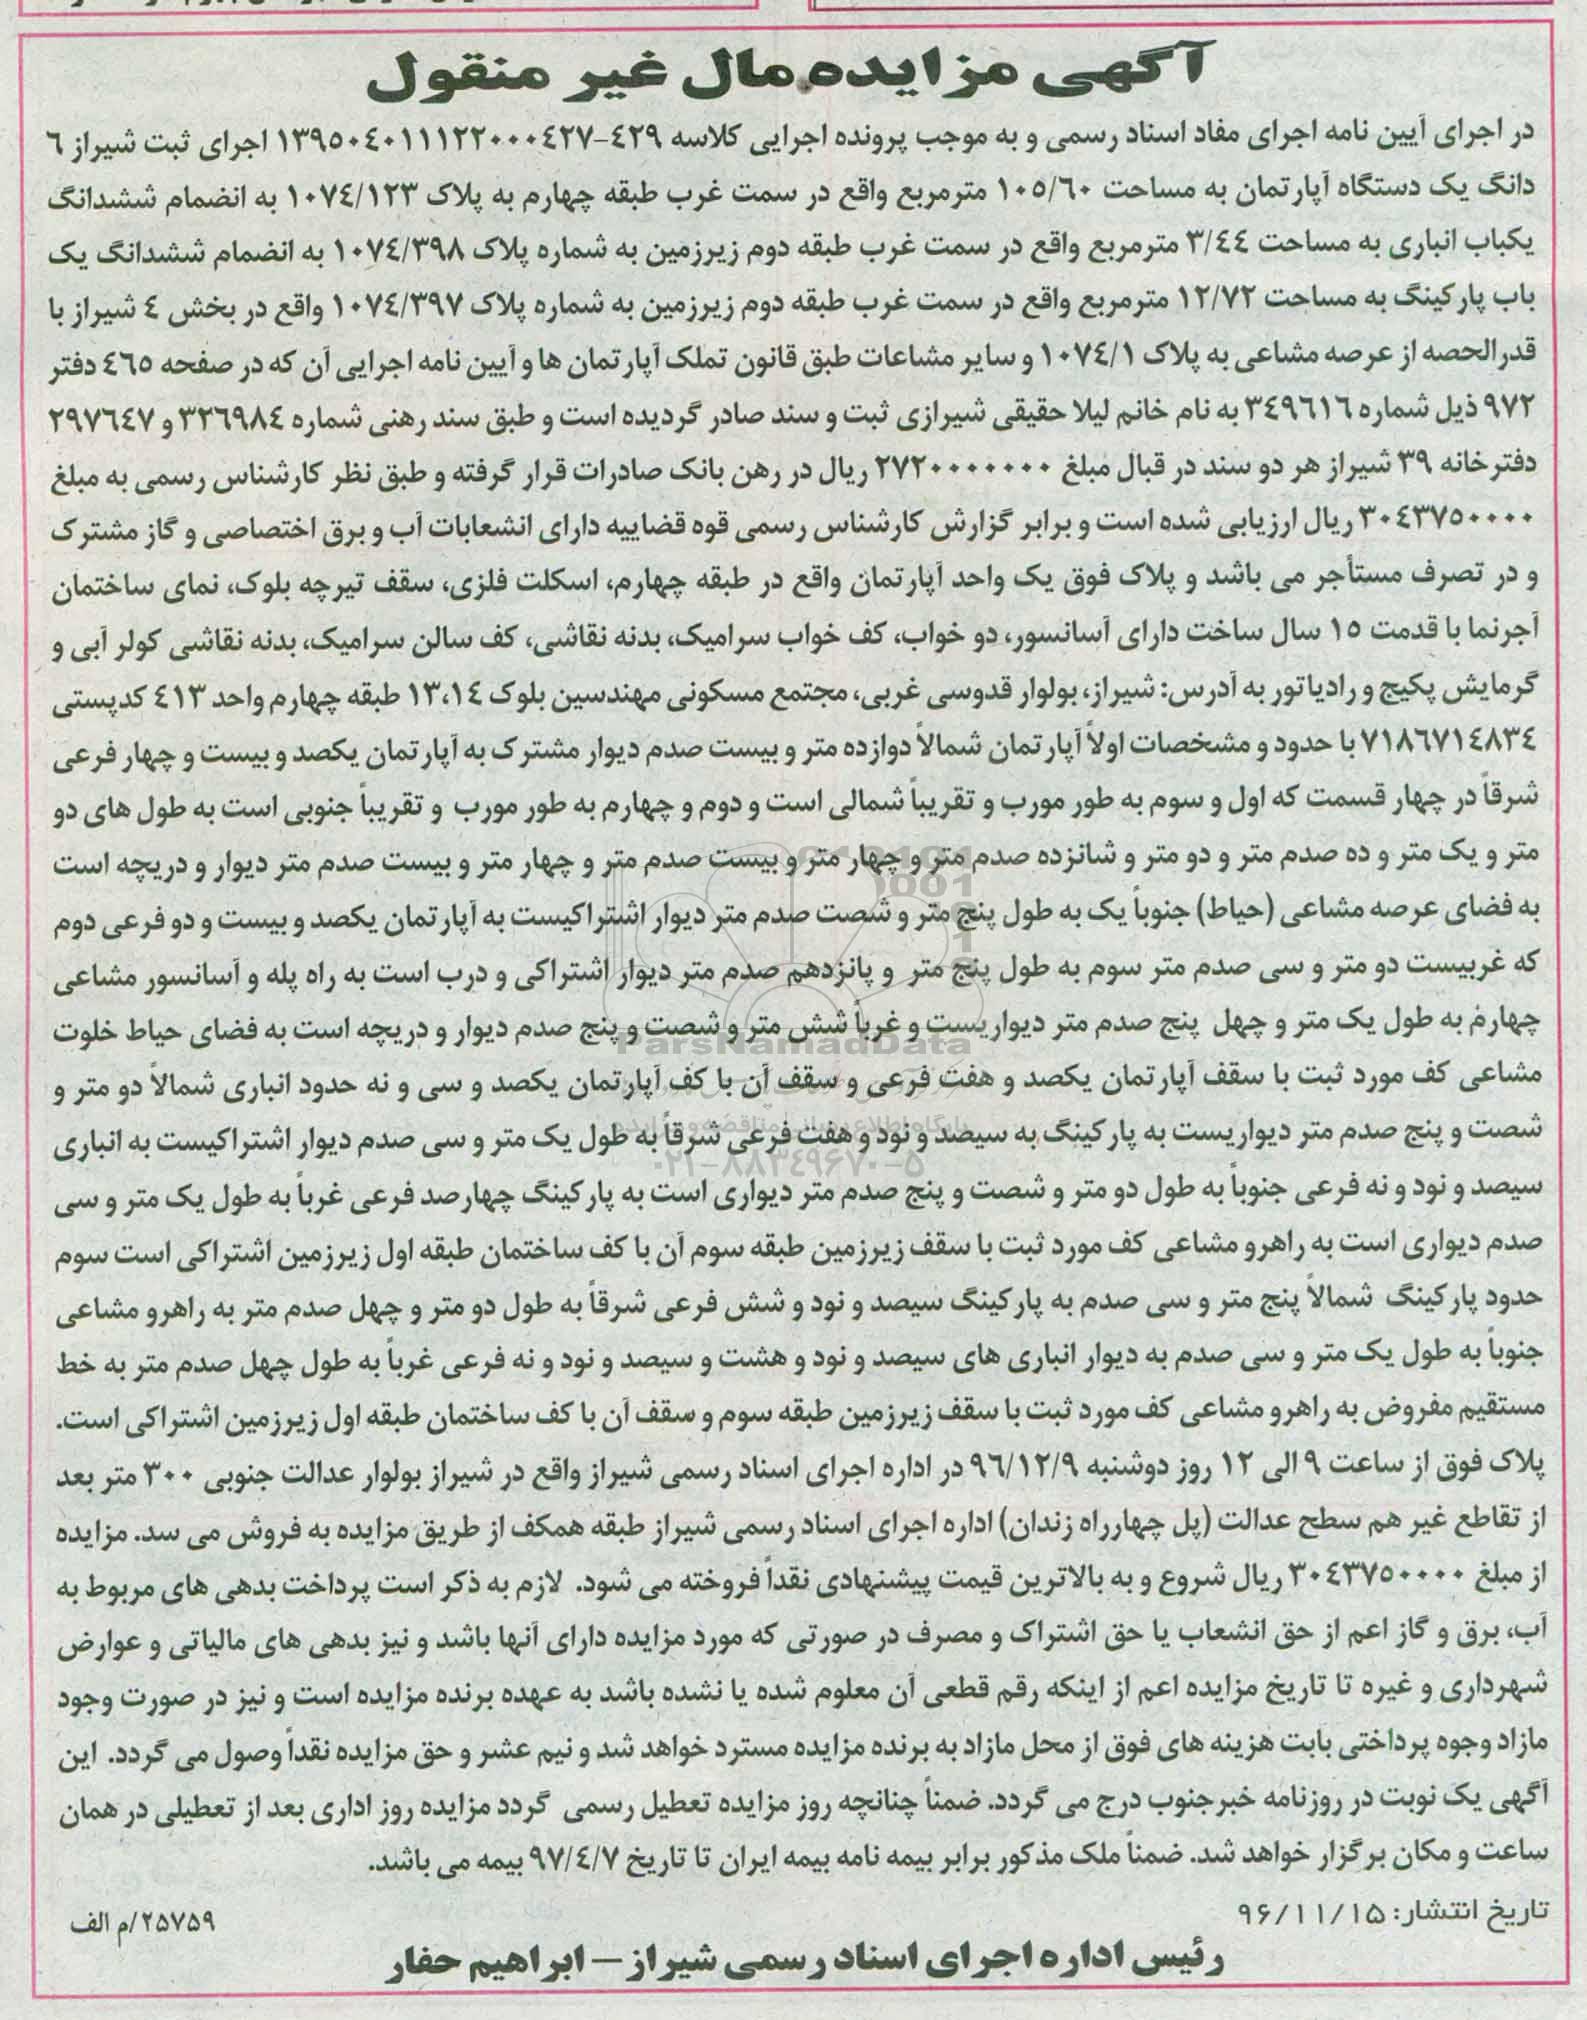 آگهی مزایده مال غیر منقول
در اجرای آیین نامه اجرای مفاد اسناد رسمی و به موجب پرونده اجرایی کلاسه ۴۲۹-۱۳۹۵۰۴۰۱۱۱۲۲۰۰۰۴۲۷ اجرای ثبت شیراز ۶
دانگ یک دستگاه آپارتمان به مساحت ۱۰۵/۶۰ مترمربع واقع در سمت غرب طبقه چهارم به پلاک ۱۰۷۴/۱۲۳ به انضمام ششدانگ
یکباب انباری به مساحت ۳/۴۴ مترمربع واقع در سمت غرب طبقه دوم زیرزمین به شماره پلاک ۱۰۷۴/۳۹۸ به انضمام ششدانگ یک
باب پارکینگ به مساحت ۱۲/۷۲ مترمربع واقع در سمت غرب طبقه دوم زیرزمین به شماره پلاک ۱۰۷۴/۳۹۷ واقع در بخش ۴ شیراز با
قدرالحصه از عرصه مشاعی به پلاک ۱۰۷۴/۱ و سایر مشاعات طبق قانون تملک آپارتمان ها و آیین نامه اجرایی آن که در صفحه ۴۶۵ دفتر
۹۷۲ ذیل شماره ۳۴۹۶۱۶ به نام خانم لیلا حقیقی شیرازی ثبت و سند صادر گردیده است و طبق سند رهنی شماره ۳۲۶۹۸۴ و ۲۹۷۶۴۷
دفترخانه ۳۹ شیراز هر دو سند در قبال مبلغ ۲۷۲۰۰۰۰۰۰۰ ریال در رهن بانک صادرات قرار گرفته و طبق نظر کارشناس رسمی به مبلغ
۳۰۴۳۷۵۰۰۰۰ ریال ارزیابی شده است و برابر گزارش کارشناس رسمی قوه قضاییه دارای انشعابات آب و برق اختصاصی و گاز مشترک
و در تصرف مستأجر می باشد و پلاک فوق یک واحد آپارتمان واقع در طبقه چهارم، اسکلت فلزی، سقف تیرچه بلوک، نمای ساختمان
آجرنما با قدمت ۱۵ سال ساخت دارای آسانسور، دو خواب، کف خواب سرامیک، بدنه نقاشی، کف سالن سرامیک، بدنه نقاشی کولر آبی و
گرمایش پکیج و رادیاتور به آدرس: شیراز، بولوار قدوسی غربی، مجتمع مسکونی مهندسین بلوک ۱۳،۱۴ طبقه چهارم واحد ۴۱۳ کدپستی
۷۱۸۶۷۱۴۸۳۴ با حدود و مشخصات اولاً آپارتمان شمالاً دوازده متر و بیست صدم دیوار مشترک به آپارتمان یکصد و بیست و چهار فرعی
شرقاً در چهار قسمت که اول و سوم به طور مورب و تقریباً شمالی است و دوم و چهارم به طور مورب و تقریباً جنوبی است به طول های دو
متر و یک متر و ده صدم متر و دو متر و شانزده صدم متر و چهار متر و بیست صدم متر و چهار متر و بیست صدم متر دیوار و دریچه است
به فضای عرصه مشاعی (حیاط) جنوباً یک به طول پنج متر و شصت صدم متر دیوار اشتراکیست به آپارتمان یکصد و بیست و دو فرعی دوم
که غربیست دو متر و سی صدم متر سوم به طول پنج متر و پانزدهم صدم متر دیوار اشتراکی و درب است به راه پله و آسانسور مشاعی
چهارم به طول یک متر و چهل پنج صدم متر دیواریست و غرباً شش متر و شصت و پنج صدم دیوار و دریچه است به فضای حیاط خلوت
مشاعی کف مورد ثبت با سقف آپارتمان یکصد و هفت فرعی و سقف آن با کف آپارتمان یکصد و سی و نه حدود انباری شمالاً دو متر و
شصت و پنج صدم متر دیواریست به پارکینگ به سیصد و نود و هفت فرعی شرقاً به طول یک متر و سی صدم دیوار اشتراکیست به انباری
سیصد و نود و نه فرعی جنوباً به طول دو متر و شصت و پنج صدم متر دیواری است به پارکینگ چهارصد فرعی غرباً به طول یک متر و سی
صدم دیواری است به راهرو مشاعی کف مورد ثبت با سقف زیرزمین طبقه سوم آن با کف ساختمان طبقه اول زیرزمین اشتراکی است سوم
حدود پارکینگ شمالاً پنج متر و سی صدم به پارکینگ سیصد و نود و شش فرعی شرقاً به طول دو متر و چهل صدم متر به راهرو مشاعی
جنوباً به طول یک متر و سی صدم به دیوار انباری های سیصد و نود و هشت و سیصد و نود و نه فرعی غرباً به طول چهل صدم متر به خط
مستقیم مفروض به راهرو مشاعی کف مورد ثبت با سقف زیرزمین طبقه سوم و سقف آن با کف ساختمان طبقه اول زیرزمین اشتراکی است.
پلاک فوق از ساعت ۹ الی ۱۲ روز دوشنبه ۹۶/۱۲/۹ در اداره اجرای اسناد رسمی شیراز واقع در شیراز بولوار عدالت جنوبی ۳۰۰ متر بعد
از تقاطع غیر هم سطح عدالت (پل چهارراه زندان) اداره اجرای اسناد رسمی شیراز طبقه همکف از طریق مزایده به فروش می سد. مزایده
از مبلغ ۳۰۴۳۷۵۰۰۰۰ ریال شروع و به بالاترین قیمت پیشنهادی نقداً فروخته می شود. لازم به ذکر است پرداخت بدهی های مربوط به
آب، برق و گاز اعم از حق انشعاب یا حق اشتراک و مصرف در صورتی که مورد مزایده دارای آنها باشد و نیز بدهی های مالیاتی و عوارض
شهرداری و غیره تا تاریخ مزایده اعم از اینکه رقم قطعی آن معلوم شده یا نشده باشد به عهده برنده مزایده است و نیز در صورت وجود
مازاد وجوه پرداختی بابت هزینه های فوق از محل مازاد به برنده مزایده مسترد خواهد شد و نیم عشر و حق مزایده نقداً وصول می گردد. این
آگهی یک نوبت در روزنامه خبرجنوب درج می گردد. ضمناً چنانچه روز مزایده تعطیل رسمی گردد مزایده روز اداری بعد از تعطیلی در همان
ساعت و مکان برگزار خواهد شد. ضمناً ملک مذکور برابر بیمه نامه بیمه ایران تا تاریخ ۹۷/۴/۷ بیمه می باشد.
تاریخ انتشار: ۹۶/۱۱/۱۵
۲۵۷۵۹/م الف
رئیس اداره اجرای اسناد رسمی شیراز – ابراهیم حفار
ParsNamadData
۰۲۱-۸۸۳۴۹۶۷۰-۵